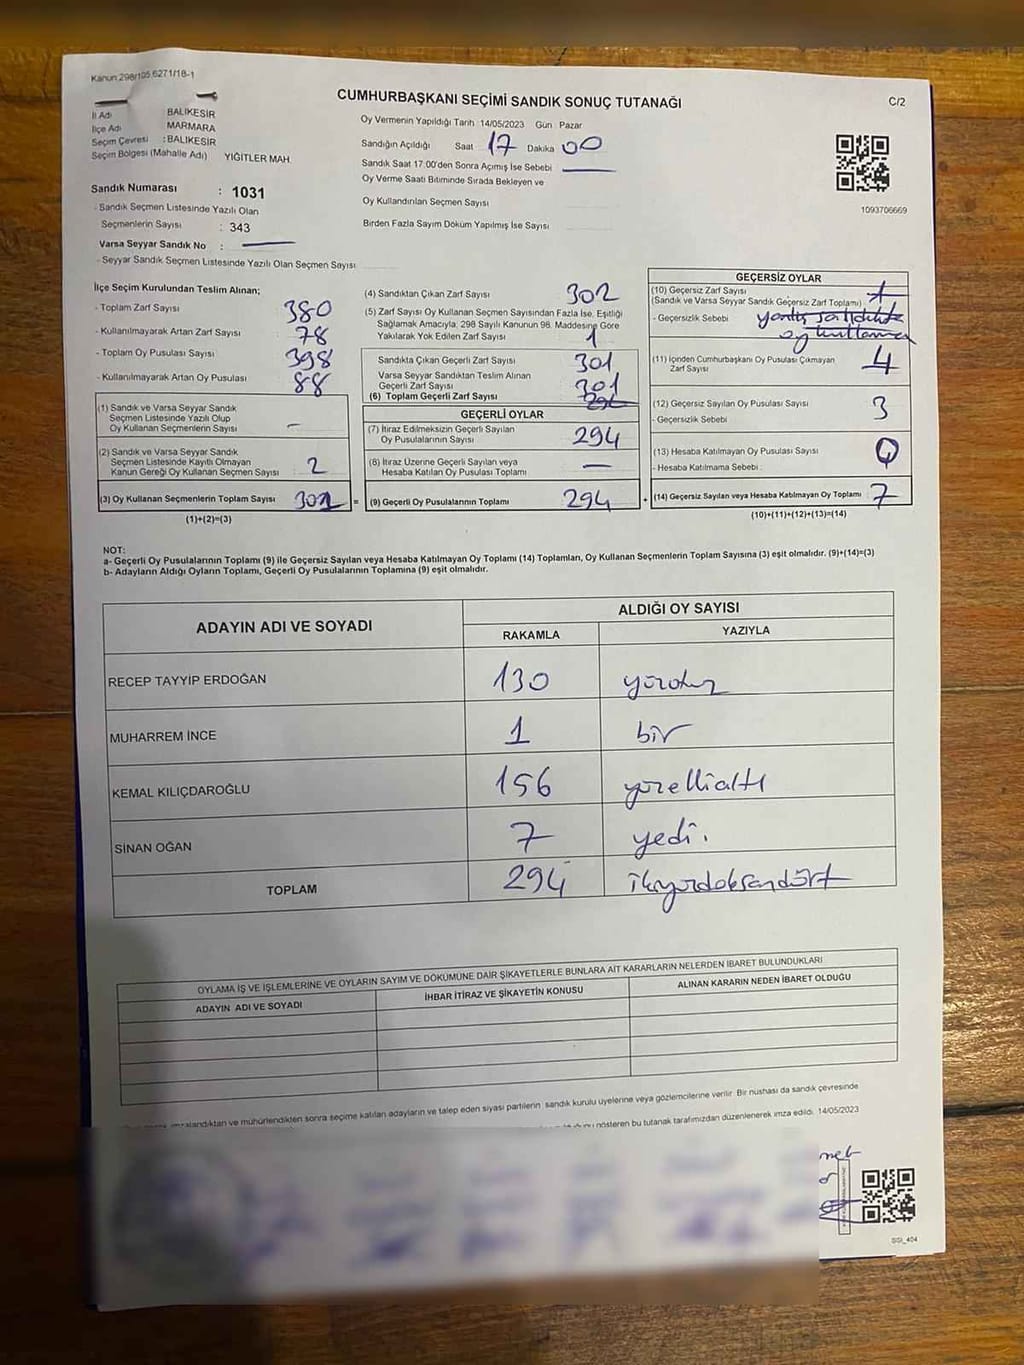 Kanun 298/105,6271/18-1
CUMHURBAŞKANI SEÇİMİ SANDIK SONUÇ TUTANAĞI
C/2
İl Adı : BALIKESİR
İlçe Adı : MARMARA
Seçim Çevresi : BALIKESİR
Seçim Bölgesi (Mahalle Adı) YİĞİTLER MAH.
Sandık Numarası : 1031
- Sandık Seçmen Listesinde Yazılı Olan
Seçmenlerin Sayısı : 343
Varsa Seyyar Sandık No :
- Seyyar Sandık Seçmen Listesinde Yazılı Olan Seçmen Sayısı
Oy Vermenin Yapıldığı Tarih 14/05/2023 Gün : Pazar
Sandığın Açıldığı Saat 17 Dakika 00
Sandık Saat 17:00'den Sonra Açımış İse Sebebi
Oy Verme Saati Bitiminde Sırada Bekleyen ve
Oy Kullandırılan Seçmen Sayısı
Birden Fazla Sayım Döküm Yapılmış İse Sayısı
1093706669
İlçe Seçim Kurulundan Teslim Alınan;
- Toplam Zarf Sayısı 380
- Kullanılmayarak Artan Zarf Sayısı 78
- Toplam Oy Pusulası Sayısı 398
- Kullanılmayarak Artan Oy Pusulası 88
(1) Sandık ve Varsa Seyyar Sandık
Seçmen Listesinde Yazılı Olup
Oy Kullanan Seçmenlerin Sayısı –
(2) Sandık ve Varsa Seyyar Sandık
Seçmen Listesinde Kayıtlı Olmayan
Kanun Gereği Oy Kullanan Seçmen Sayısı 2
(3) Oy Kullanan Seçmenlerin Toplam Sayısı 301 =
(1)+(2)=(3)
(4) Sandıktan Çıkan Zarf Sayısı 302
(5) Zarf Sayısı Oy Kullanan Seçmen Sayısından Fazla İse, Eşitliği
Sağlamak Amacıyla; 298 Sayılı Kanunun 98. Maddesine Göre
Yakılarak Yok Edilen Zarf Sayısı 1
Sandıkta Çıkan Geçerli Zarf Sayısı 301
Varsa Seyyar Sandıktan Teslim Alınan
Geçerli Zarf Sayısı 301
(6) Toplam Geçerli Zarf Sayısı
GEÇERLİ OYLAR
(7) İtiraz Edilmeksizin Geçerli Sayılan
Oy Pusulalarının Sayısı 294
(8) İtiraz Üzerine Geçerli Sayılan veya
Hesaba Katılan Oy Pusulası Toplamı —
(9) Geçerli Oy Pusulalarının Toplamı 294 +
GEÇERSİZ OYLAR
(10) Geçersiz Zarf Sayısı
(Sandık ve Varsa Seyyar Sandık Geçersiz Zarf Toplamı) 1
- Geçersizlik Sebebi yanlış sandıkta
oy kullanma
(11) İçinden Cumhurbaşkanı Oy Pusulası Çıkmayan
Zarf Sayısı 4
(12) Geçersiz Sayılan Oy Pusulası Sayısı 3
- Geçersizlik Sebebi :
(13) Hesaba Katılmayan Oy Pusulası Sayısı
- Hesaba Katılmama Sebebi :
(14) Geçersiz Sayılan veya Hesaba Katılmayan Oy Toplamı 7
(10)+(11)+(12)+(13)=(14)
NOT:
a- Geçerli Oy Pusulalarının Toplamı (9) ile Geçersiz Sayılan veya Hesaba Katılmayan Oy Toplamı (14) Toplamları, Oy Kullanan Seçmenlerin Toplam Sayısına (3) eşit olmalıdır. (9)+(14)=(3)
b- Adayların Aldığı Oyların Toplamı, Geçerli Oy Pusulalarının Toplamına (9) eşit olmalıdır.
ADAYIN ADI VE SOYADI
ALDIĞI OY SAYISI
RAKAMLA YAZIYLA
RECEP TAYYİP ERDOĞAN 130 yüzotuz
MUHARREM İNCE 1 bir
KEMAL KILIÇDAROĞLU 156 yüzelliAltı
SİNAN OĞAN 7 yedi.
TOPLAM 294 ikiyüzdoksandört
OYLAMA İŞ VE İŞLEMLERİNE VE OYLARIN SAYIM VE DÖKÜMÜNE DAİR ŞİKAYETLERLE BUNLARA AİT KARARLARIN NELERDEN İBARET BULUNDUKLARI
ADAYIN ADI VE SOYADI İHBAR İTİRAZ VE ŞİKAYETİN KONUSU ALINAN KARARIN NEDEN İBARET OLDUĞU
imzalandıktan ve mühürlendikten sonra seçime katılan adayların ve talep eden siyasi partilerin sandık kurulu üyelerine veya gözlemcilerine verilir. Bir nüshası da sandık çevresinde
gösteren bu tutanak tarafımızdan düzenlenerek imza edildi. 14/05/2023